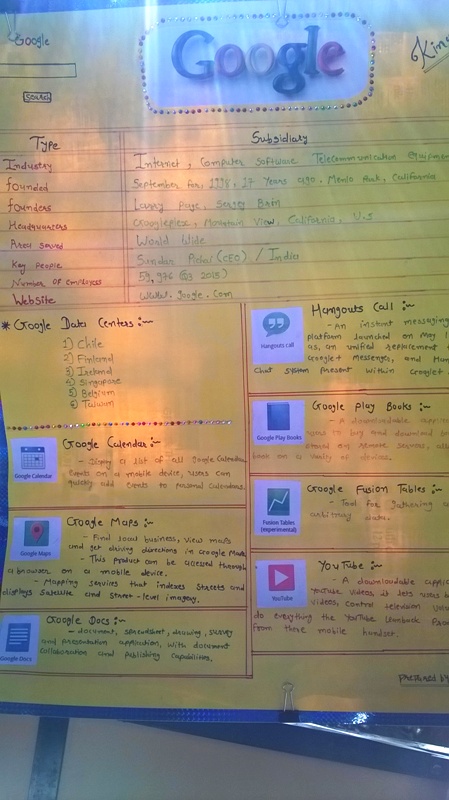 Google
Google
King
Search
Type Subsidiary
Industry Internet, Computer Software Telecommunication Equipmen
founded September for, 1998, 17 Years ago. Menlo Park, California
founders Larry Page, Sergey Brin
Headquarters Googleplex, Mountain View, California, U.S
Area served World Wide
Key People Sundar Pichai (CEO) / India
Number of employees 59,976 (Q3 2015)
Website www.google.com
* Google Data Centers :~
1) Chile
2) Finland
3) Ireland
4) Singapore
5) Belgium
6) Taiwan
Google Calendar :~
- Display a list of all Google Calendar
Events on a mobile device, users can
quickly add Events to personal Calendars.
Google Calendar
Google Maps :~
- Find local business, view maps
and get driving directions in Google Maps
- This product can be accessed through
a browser on a mobile device.
- Mapping services that indexes Streets and
displays Satellite and Street-level imagery.
Google Maps
Google Docs :~
- document, spreadsheet, drawing, survey
and presentation application, with document
collaboration and publishing capabilities.
Google Docs
Hangouts Call :~
- An instant messaging
platform launched on May 1
as, an unified replacement
Google+ Messenger, and
Chat System present within Google+
Hangouts call
Google Play Books :~
- A downloadable
book on a variety of devices.
Google Play Books
Google Fusion Tables :~
- Tool for gathering
arbitrary data.
Fusion Tables
(experimental)
YouTube :~
- A downloadable applic
YouTube videos, it lets users
videos, control television
do everything the YouTube Leanback
From there mobile handset.
YouTube
Prepared by